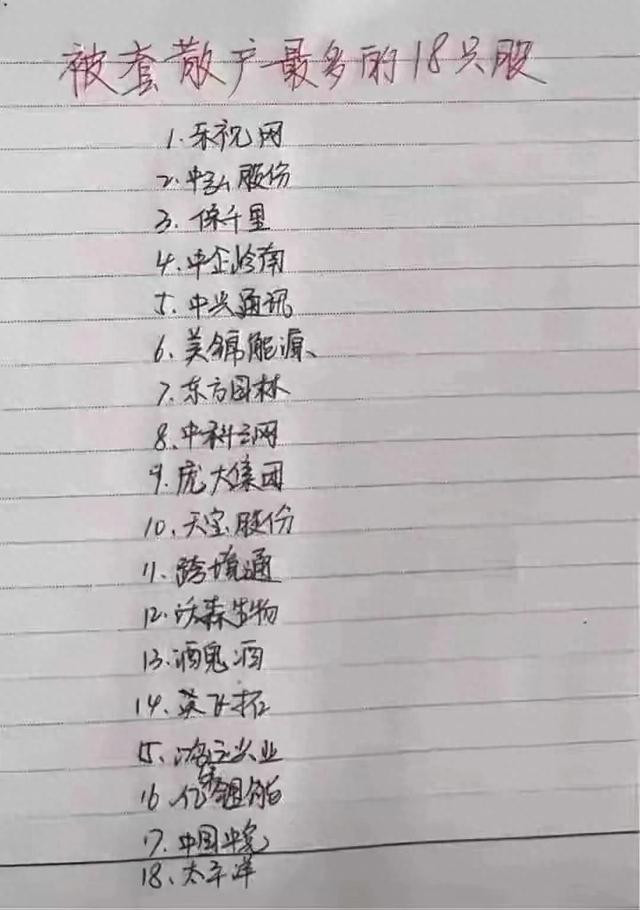 被套散户最多的18只股
1.乐视网
2.中弘股份
3.保千里
4.中企岭南
5.中兴通讯
6.美锦能源、
7.东方园林
8.中科云网
9.庞大集团
10.天宝股份
11.跨境通
12.沃森生物
13.酒鬼酒
14.英飞拓
15.兴业
16.亿
17.中国中免
18.太平洋